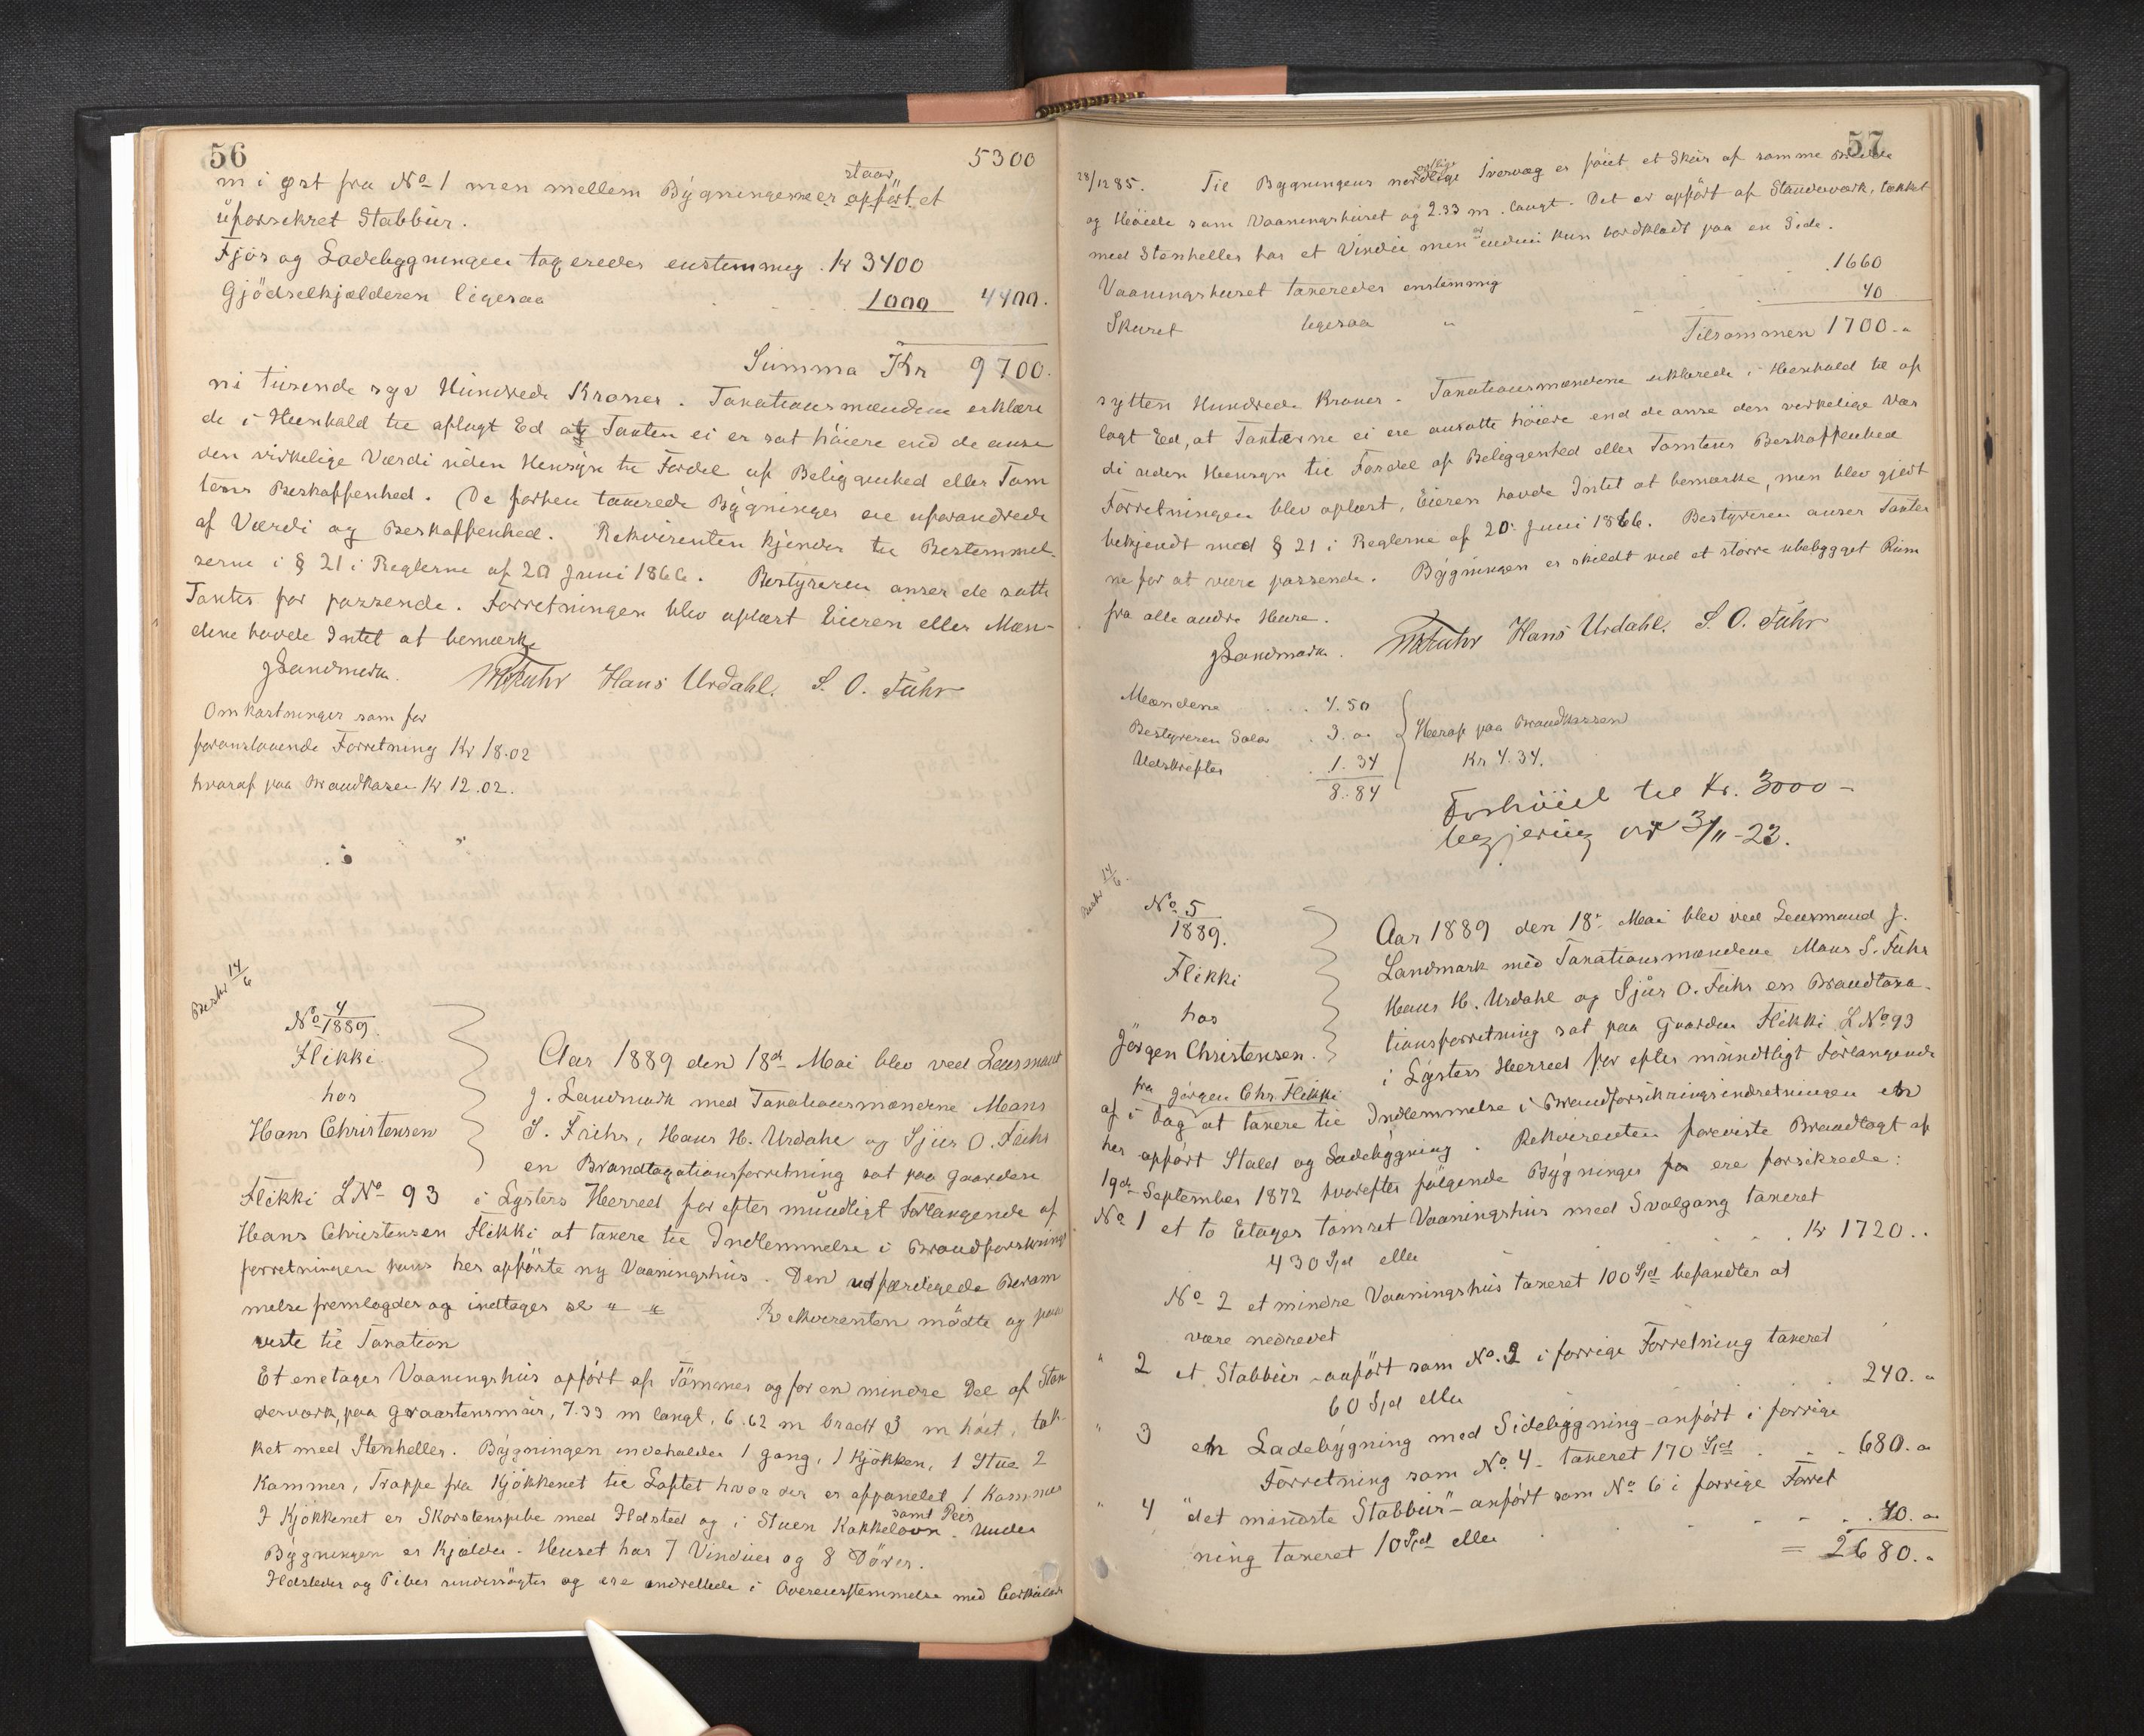 56
5300
staar
m i øst fra No 1 men mellem Bygningerne er opført et
uforsikret Stabbur.
Fjøs og Ladebyggningen taxeredes enstemmig . Kr 3400
Gjödselkjælderen ligesaa 1000 4400.
Summa Kr 9700.
ni tusende syv Hundrede Kroner. Taxationsmændene erklære
de i Henhold til aflagt Ed at Taxten ei er sat höiere end de anse
den virkelige Værdi uden Hensyn til Fordel af Beliggenhed eller Tom
tens Beskaffenhed. De forhen taxerede Bygninger ere uforandrede
af Værdi og Beskaffenhed. Rekvirenten kjender til Bestemmel-
serne i § 21 i Reglerne af 20 Juni 1866. Bestyreren anser de satte
Taxter for passende. Forretningen blev oplæst Eieren eller Mæn-
dene havde Intet at bemærke
J Landmark. M S Fuhr Hans Urdahl. S. O. Fuhr
Omkostninger som for
foranstaaende Forretning Kr 18.02
hvoraf paa Brandkassen Kr 12.02.
Beskr 14/6
No 4/1889.
Flikki
hos
Hans Christensen
Aar 1889 den 18de Mai blev ved Lensmand
J. Landmark med Taxationsmændene Mons
S. Fuhr, Hans H. Urdahl og Sjur O. Fuhr
en Brandtaxationsforretning sat paa Gaarden
Flikki LNo 93 i Lysters Herred for efter mundtligt Forlangende af
Hans Christensen Flikki at taxere til Indlemmelse i Brandforsikrings
forretningen hans her opførte ny Vaaningshus. Den udfærdigede Beram
melse fremlagdes og indtages sl " " Rekvirenten mödte og paa
viste til Taxation
Et enetages Vaaningshus opfört af Tömmer og for en mindre Del af Stan
derværk, paa Graastensmur, 7.33 m langt, 6.62 m bredt 3 m höit, tæk-
ket med Stenheller. Bygningen indeholder 1 Gang, 1 Kjökken, 1 Stue 2
Kammer, Trappe fra Kjökkenet til Loftet hvor der er afpanelet 1 Kammer
I Kjökkenet er Skorstenspibe med Ildsted og i Stuen Kakkelovn samt Peis. Under
Bygningen er Kjelder. Huset har 7 Vinduer og 8 Dörer.
Ildsteder og Piber undersögtes og ere indrettede i Overensstemmelse med Cirkulære
57
28/12 85. Til Bygningens nordlige Tvervæg er föiet et Skur af samme Bredde
og Höide som Vaaningshuset og 2.33 m. langt. Det er opfört af Standerværk, tækket
med Stenheller har et Vindu men er endnu kun bordklædt paa en Side.
Vaaningshuset taxeredes enstemmig 1660
Skuret ligesaa " 40
Tilsammen 1700.-
sytten Hundrede Kroner. Taxationsmændene erklærede i Henhold til af
lagt Ed, at Taxterne ei ere ansatte höiere end de anse den virkelige Vær
di uden Hensyn til Fordel af Beliggenhed eller Tomtens Beskaffenhed
Forretningen blev oplæst, Eieren havde Intet at bemærke, men blev gjort
bekjendt med § 21 i Reglerne af 20. Juni 1866. Bestyreren anser Taxter
ne for at være passende. Bygningen er skildt ved et större ubebygget Rum
fra alle andre Huse.
J Landmark. M S Fuhr Hans Urdahl. S. O. Fuhr
Mændene 4.50
Bestyreren Salær 3.00
Udskrifter 1.34
8.84
Heraf paa Brandkassen
Kr 4.34.
Forhöiel til Kr. 3000 -
begjæring av 3/11 - 23.
Beskr 14/6.
No 5/1889.
Flikki
hos
Jörgen Christensen.
Aar 1889 den 18. Mai blev ved Lensmand J.
Landmark med Taxationsmændene Mons S. Fuhr
Hans H. Urdahl og Sjur O. Fuhr en Brandtaxa-
tionsforretning sat paa Gaarden Flikki LNo 93
i Lysters Herred for efter mundtligt Forlangende
fra Jörgen Chr. Flikki
af i Dag at taxere til Indlemmelse i Brandforsikringsindretningen en
her opfört Stald og Ladebygning. Rekvirenten foreviste Brandtaxt af
19de September 1872 hvorefter fölgende Bygninger ere forsikrede:
No 1 et to Etages tömret Vaaningshus med Svalgang taxeret
430 Spd eller Kr 1720..
No 2 et mindre Vaaningshus taxeret 100 Spd befandtes at
være nedrevet
" 2 et Stabbur - anfört som No. 3 i forrige Forretning taxeret
60 Spd eller 240.-
" 3 en Ladebygning med Sidebygning - anfört i forrige
Forretning som No 4 - taxeret 170 Spd 680.-
" 4 "det mindste Stabbur" - anfört som No 6 i forrige Forret
ning taxeret 10 Spd eller 40.-
= 2680.-